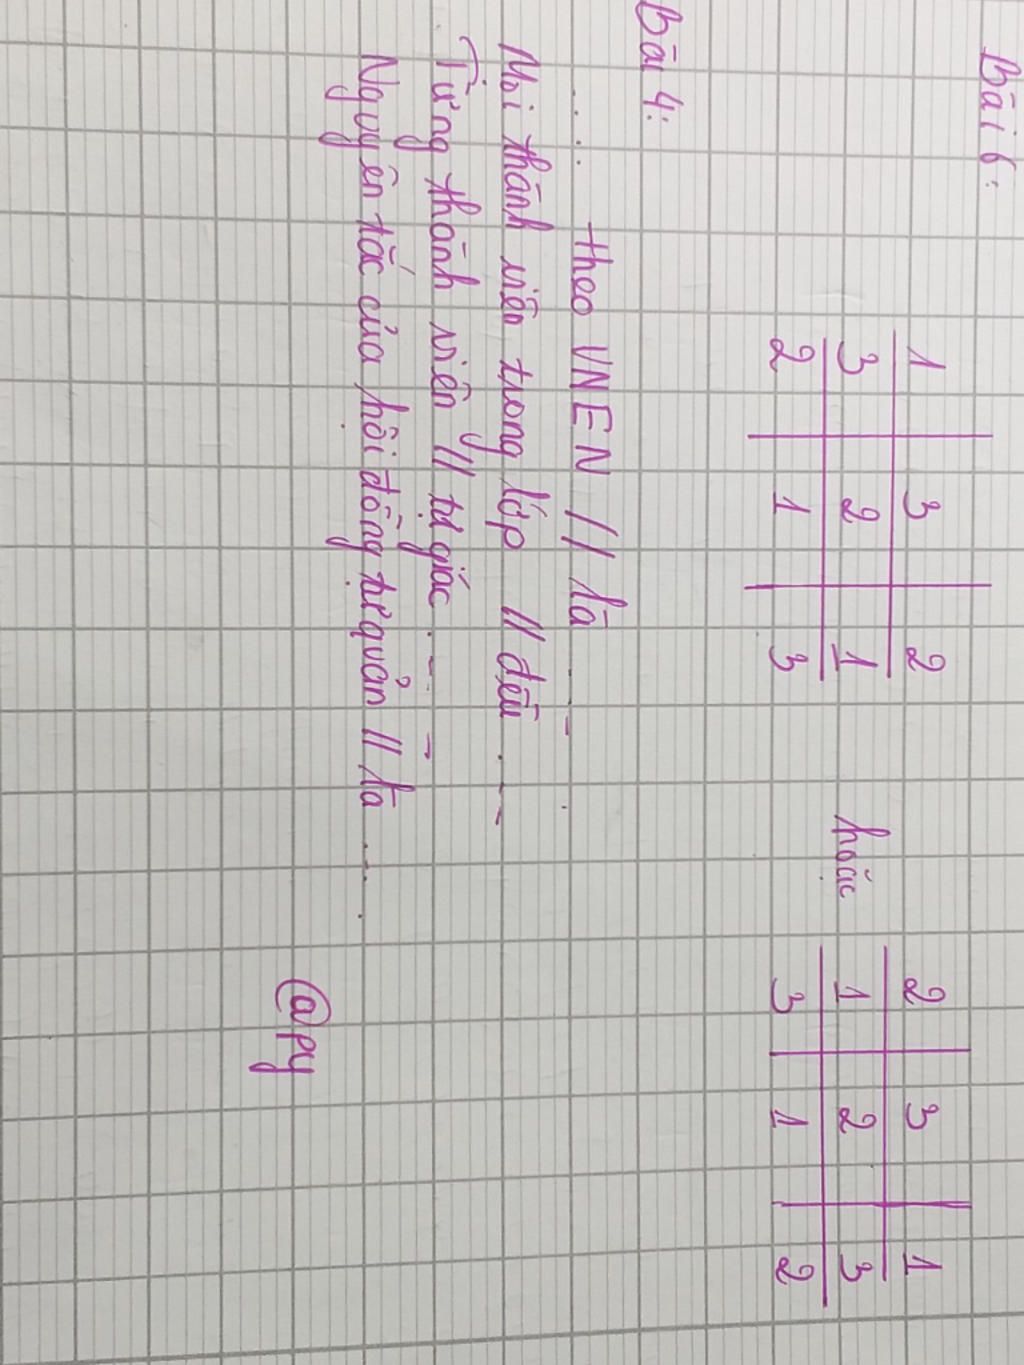 Bài 6:
1 3 2
3 2 1 hoặc
2 1 3
2 3 1
1 2 3
3 1 2
Bài 4:
... theo VNEN // là ...
Mỗi thành viên trong lớp // đều ...
Từng thành viên // tự giác ...
Nguyên tắc của hội đồng tự quản // là ...
@py